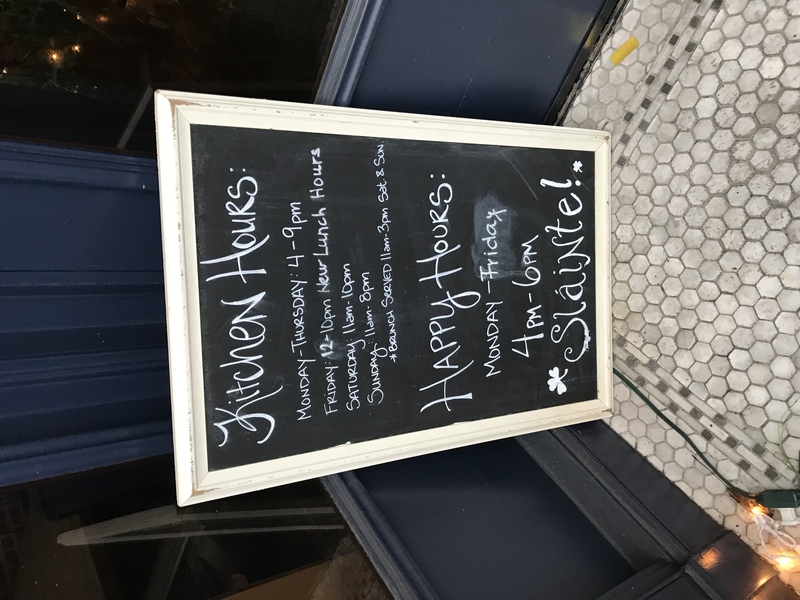 Kitchen Hours:
MONDAY-THURSDAY: 4-9pm
FRIDAY: 12-10pm New Lunch Hours
SATURDAY 11am-10pm
SUNDAY: 11am-8pm
*BRUNCH SERVED 11am-3pm Sat & Sun.
HAPPY HOURS:
MONDAY-Friday
4PM-6PM
Sláinte!